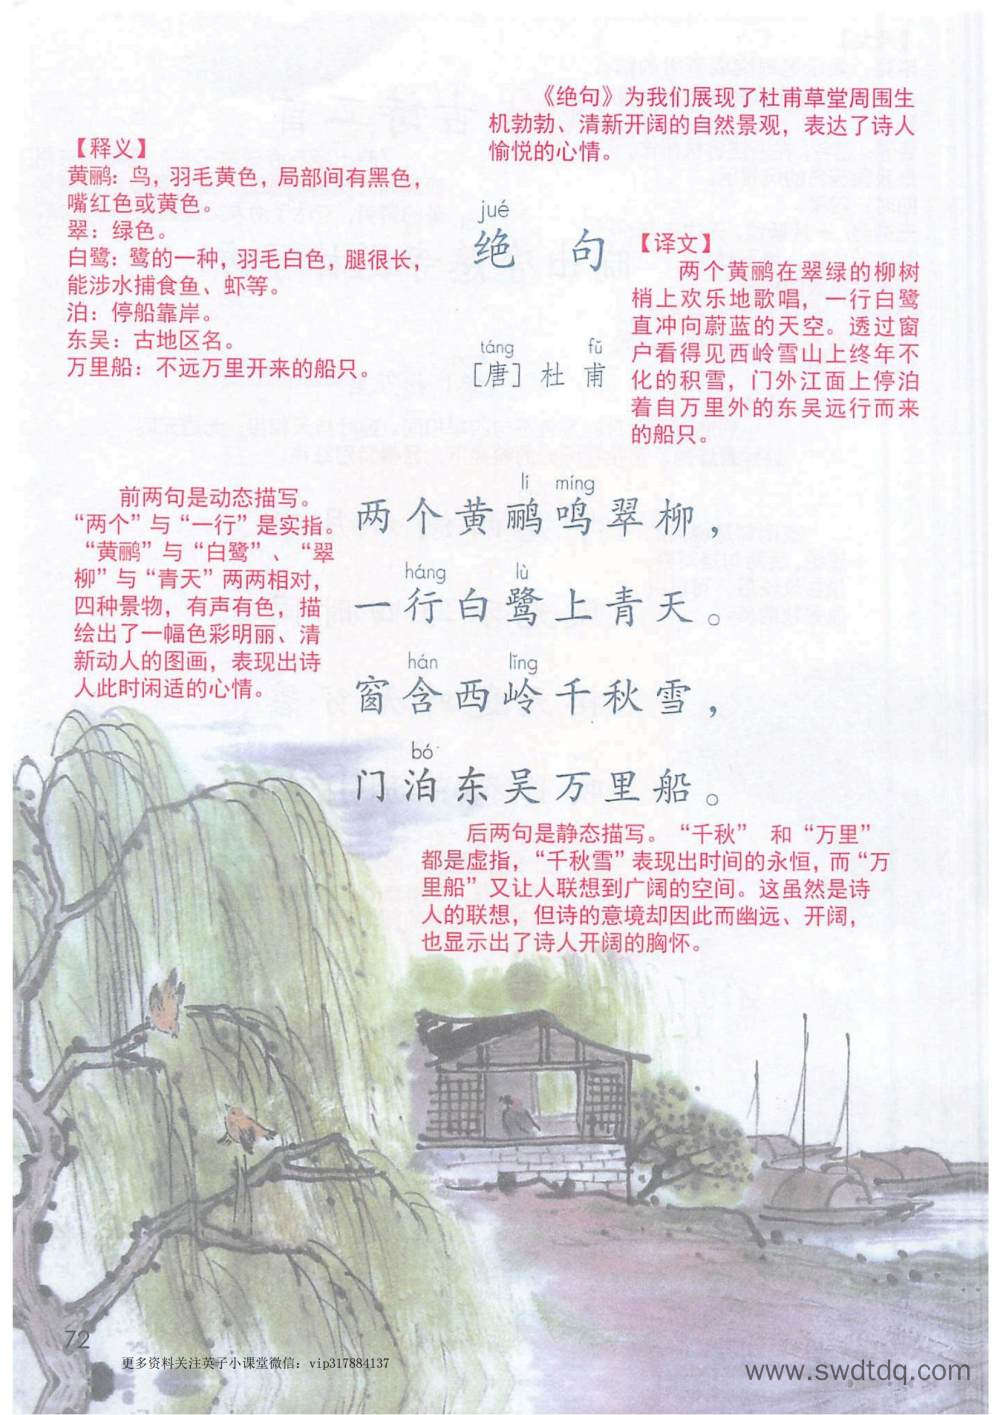 《绝句》为我们展现了杜甫草堂周围生
机勃勃、清新开阔的自然景观，表达了诗人
愉悦的心情。
【释义】
黄鹂：鸟，羽毛黄色，局部间有黑色，
嘴红色或黄色。
翠：绿色。
白鹭：鹭的一种，羽毛白色，腿很长，
能涉水捕食鱼、虾等。
泊：停船靠岸。
东吴：古地区名。
万里船：不远万里开来的船只。
jué
绝 句
táng fǔ
［唐］杜 甫
【译文】
两个黄鹂在翠绿的柳树
梢上欢乐地歌唱，一行白鹭
直冲向蔚蓝的天空。透过窗
户看得见西岭雪山上终年不
化的积雪，门外江面上停泊
着自万里外的东吴远行而来
的船只。
前两句是动态描写。
“两个”与“一行”是实指。
“黄鹂”与“白鹭”、“翠
柳”与“青天”两两相对，
四种景物，有声有色，描
绘出了一幅色彩明丽、清
新动人的图画，表现出诗
人此时闲适的心情。
lí míng
两个黄鹂鸣翠柳，
háng lù
一行白鹭上青天。
hán lǐng
窗含西岭千秋雪，
bó
门泊东吴万里船。
后两句是静态描写。“千秋” 和“万里”
都是虚指，“千秋雪”表现出时间的永恒，而“万
里船”又让人联想到广阔的空间。这虽然是诗
人的联想，但诗的意境却因此而幽远、开阔，
也显示出了诗人开阔的胸怀。
72
更多资料关注英子小课堂微信：vip317884137
www.swdtdq.com